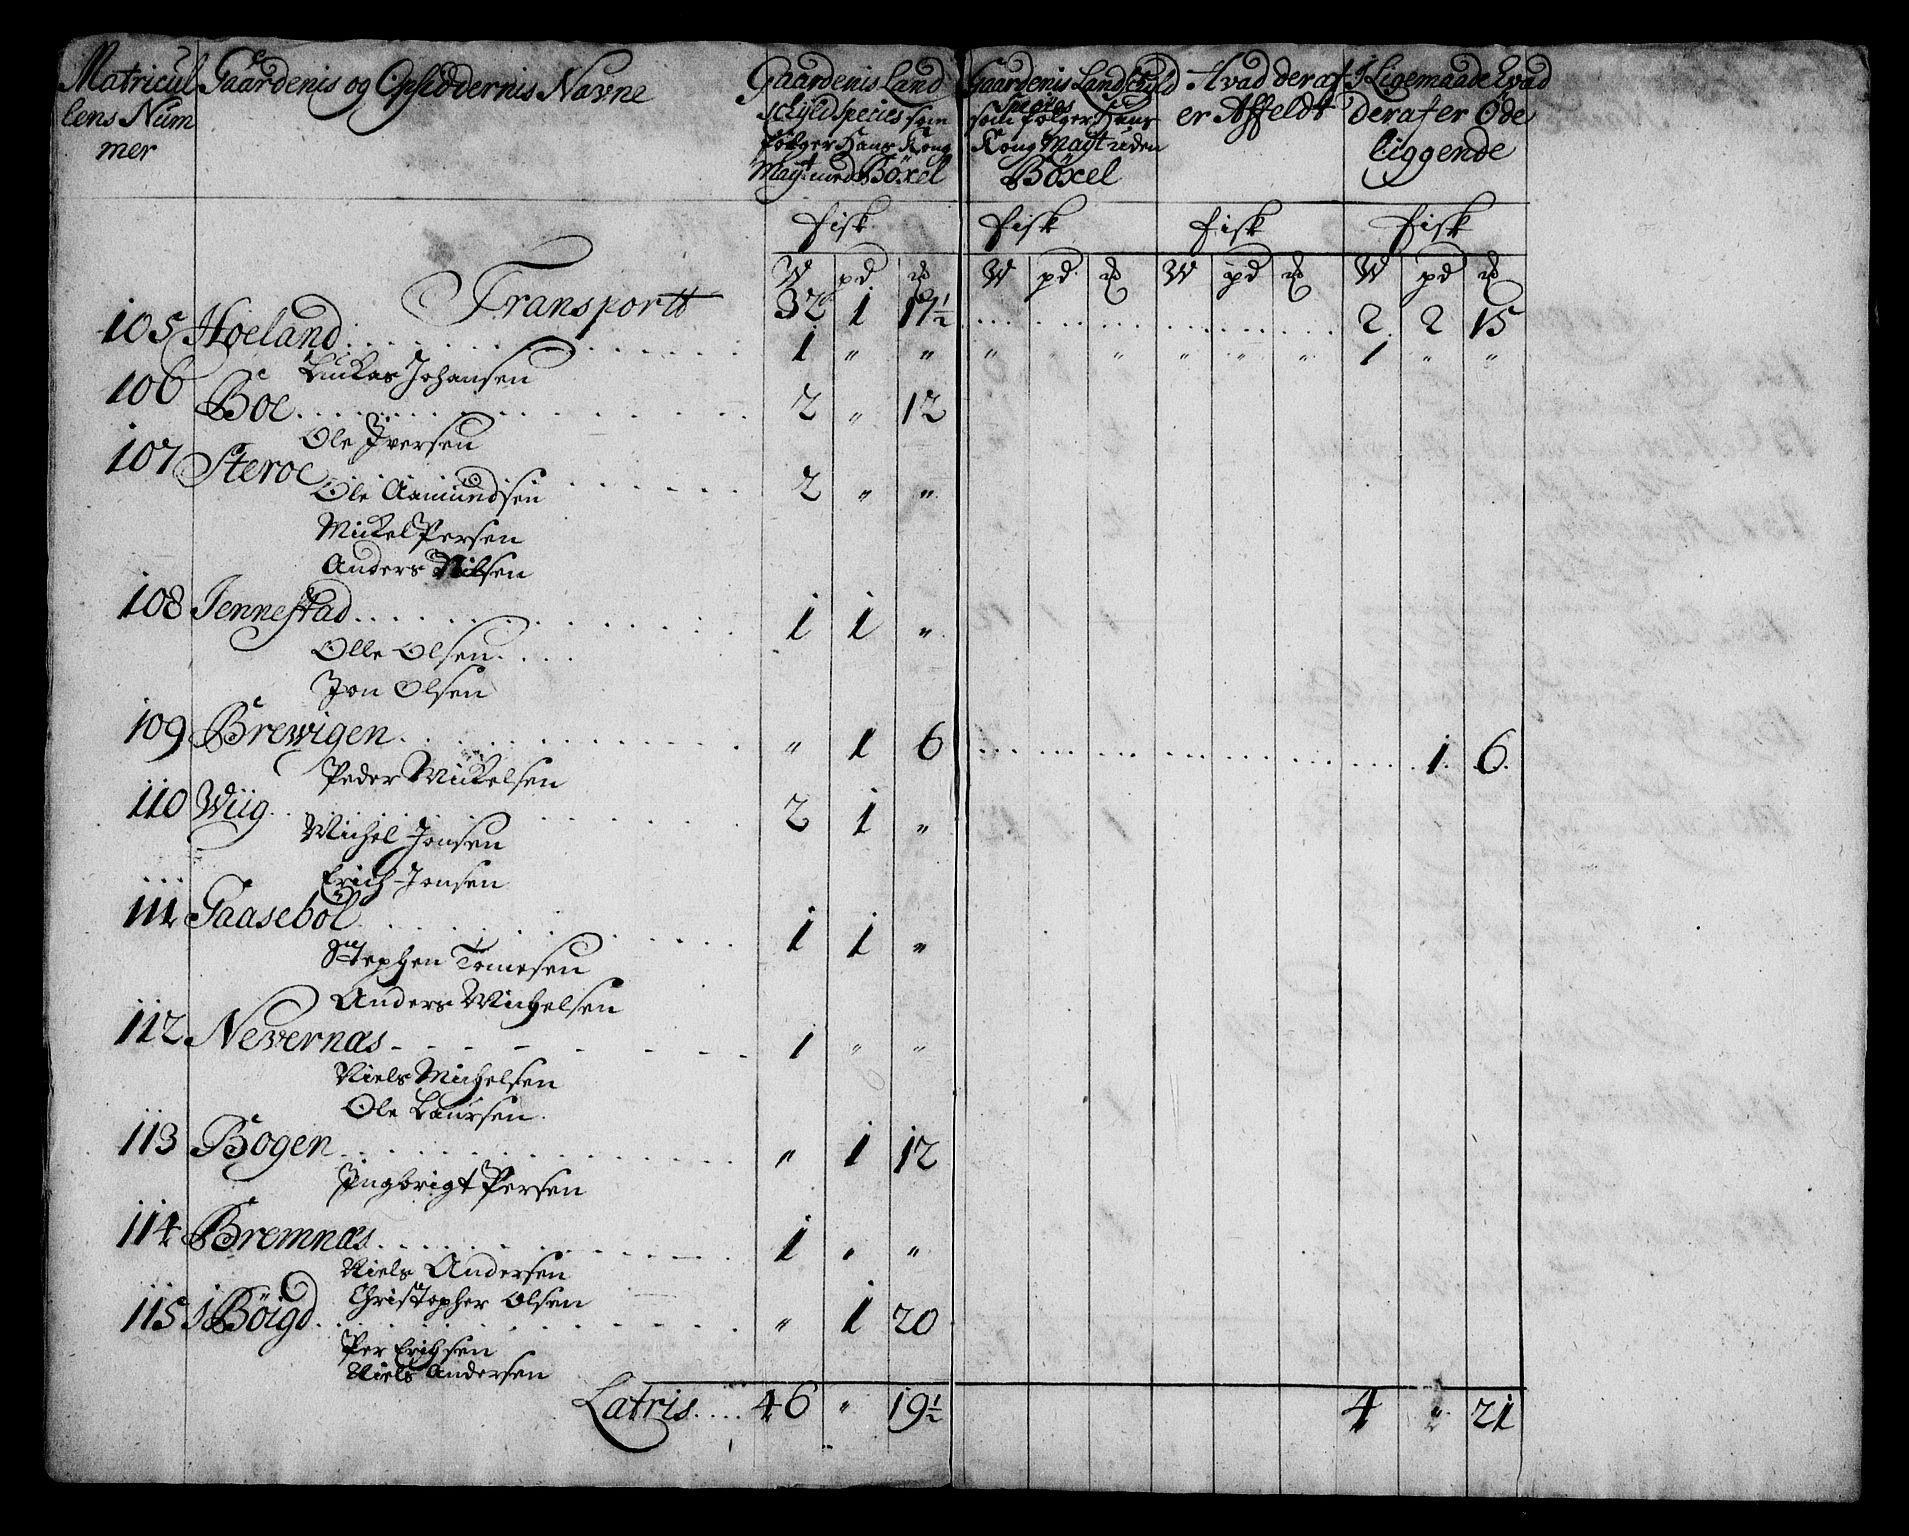 Matricul
lens Num
mer
Gaardenis og Opsiddernis Navne
Gaardenis Land
schyld species som
følger Hans Kong
Mayt: med Böxel
Gaardenis Landschyld
Species
som følger Hans
Kong Mayt uden
Böxel
Hvad deraf
er Affeldt
I Ligemaade hvad
deraf er Øde
liggende
fisk fisk fisk fisk
W pd W pd W pd W pd
Transportt 32 1 17½ 2 2 15
105 Hoeland 1 " " " " " " " " 1 " "
Luckas Johansen
106 Boe 2 " 12
Ole Iversen
107 Steroe 2 " "
Ole Aamundsen
Mickel Persen
Anders Nilsen
108 Jennestad 1 1 "
Olle Olsen
Jon Olsen
109 Brewigen " 1 6 1 6
Peder Mickelsen
110 Wiig 2 1 "
Michel Jonsen
Erich Jonsen
111 Gaaseböl 1 1 "
Stephen Tomesen
Anders Michelsen
112 Nevernæs 1 " "
Niels Michelsen
Ole Laursen
113 Bogen " 1 12
Ingbrigt Persen
114 Bremnæs 1 " "
Niels Andersen
Christopher Olsen
115 I Böigd " 1 20
Per Erichsen
Niels Andersen
Latris 46 " 19½ 4 " 21